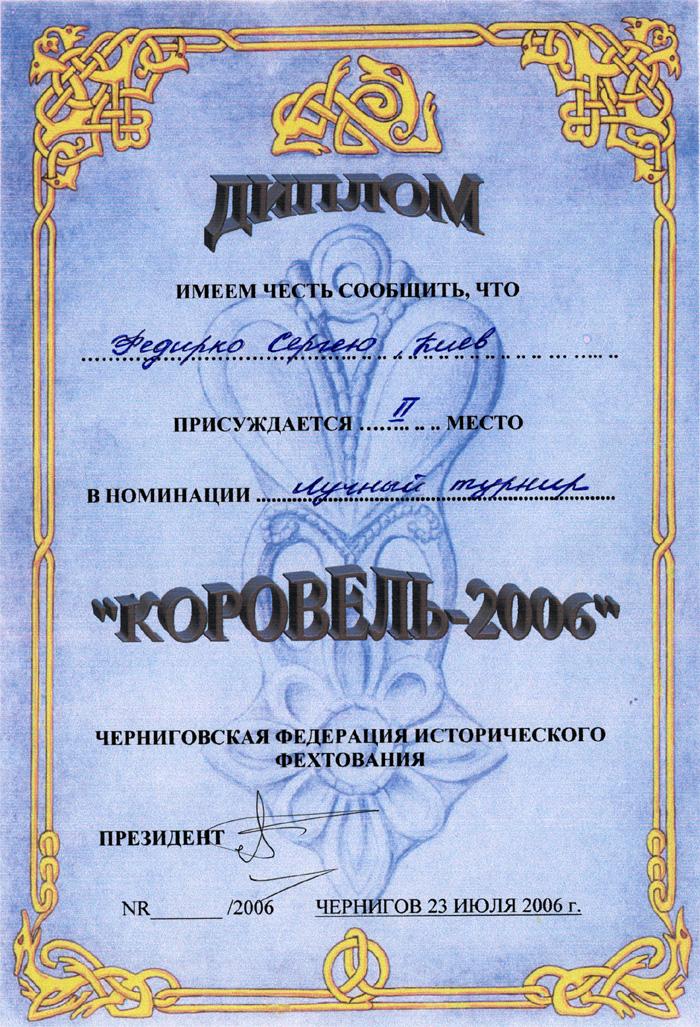 ДИПЛОМ
ИМЕЕМ ЧЕСТЬ СООБЩИТЬ, ЧТО
Федирко Сергею, Киев
ПРИСУЖДАЕТСЯ II МЕСТО
В НОМИНАЦИИ Лучный турнир
"КОРОВЕЛЬ-2006"
ЧЕРНИГОВСКАЯ ФЕДЕРАЦИЯ ИСТОРИЧЕСКОГО
ФЕХТОВАНИЯ
ПРЕЗИДЕНТ
NR_______ /2006 ЧЕРНИГОВ 23 ИЮЛЯ 2006 г.